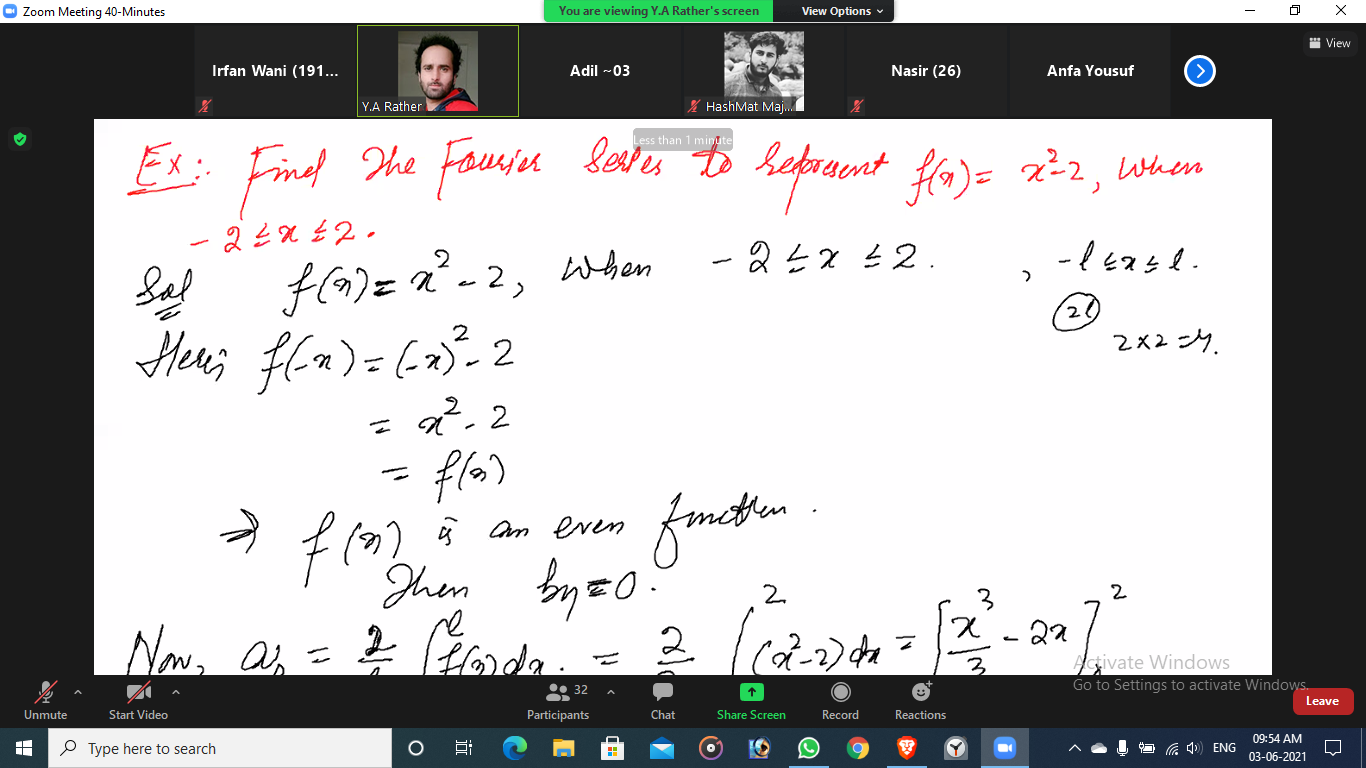 Zoom Meeting 40-Minutes
You are viewing Y.A Rather's screen
View Options
View
Irfan Wani (191...
Y.A Rather
Adil ~03
HashMat Maj...
Nasir (26)
Anfa Yousuf
Less than 1 minute
Ex:. Find The Fourier Series to represent f(x) = x²-2, when
-2 ≤ x ≤ 2.
Sol f(x) = x² - 2, when -2 ≤ x ≤ 2. , -l ≤ x ≤ l.
2l
2×2=4.
Here, f(-x) = (-x)² - 2
= x² - 2
= f(x)
⇒ f(x) is an even function.
Then bn = 0.
Now, a₀ = 2/l ∫ˡ f(x) dx. = 2/2 ∫² (x²-2) dx = [x³/3 - 2x]²
Activate Windows
Go to Settings to activate Windows.
Unmute
Start Video
32
Participants
Chat
Share Screen
Record
Reactions
Leave
Type here to search
ENG
09:54 AM
03-06-2021